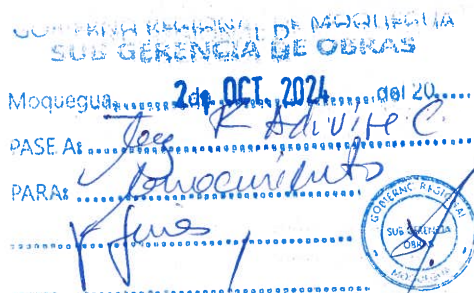 GOBIERNO REGIONAL DE MOQUEGUA
SUB GERENCIA DE OBRAS
Moquegua, 2 de OCT. 2024 del 20
PASE A: R
PARA: Conocimiento
y fines
GOBIERNO REGIONAL
SUB GERENCIA
OBRAS
MOQUEGUA